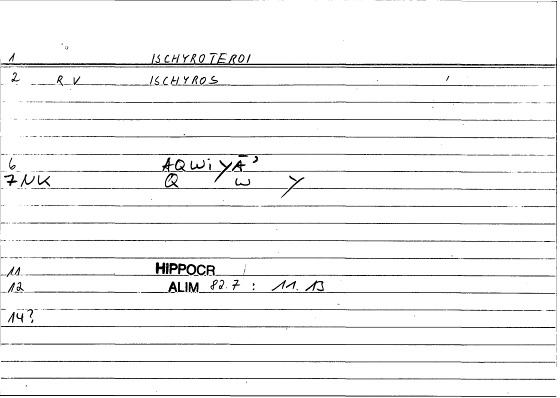 1 ISCHYROTEROI
2 RV ISCHYROS
6 AQWiYĀ'
7 NK Q W Y
11 HIPPOCR
12 ALIM 82.7 : 11. 13
14?